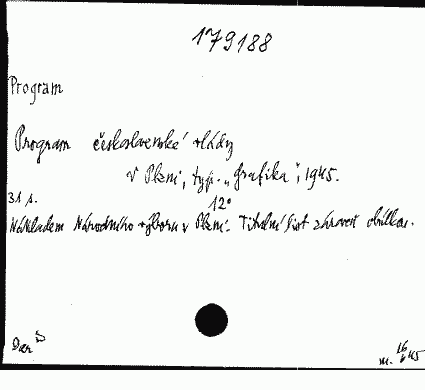 179188
Program
Program československé vlády
v Plzni, typ. „Grafika“, 1945.
31 s. 12°
Nákladem Národního výboru v Plzni. Titulní list zároveň obálkou.
Dar
m. 16 45